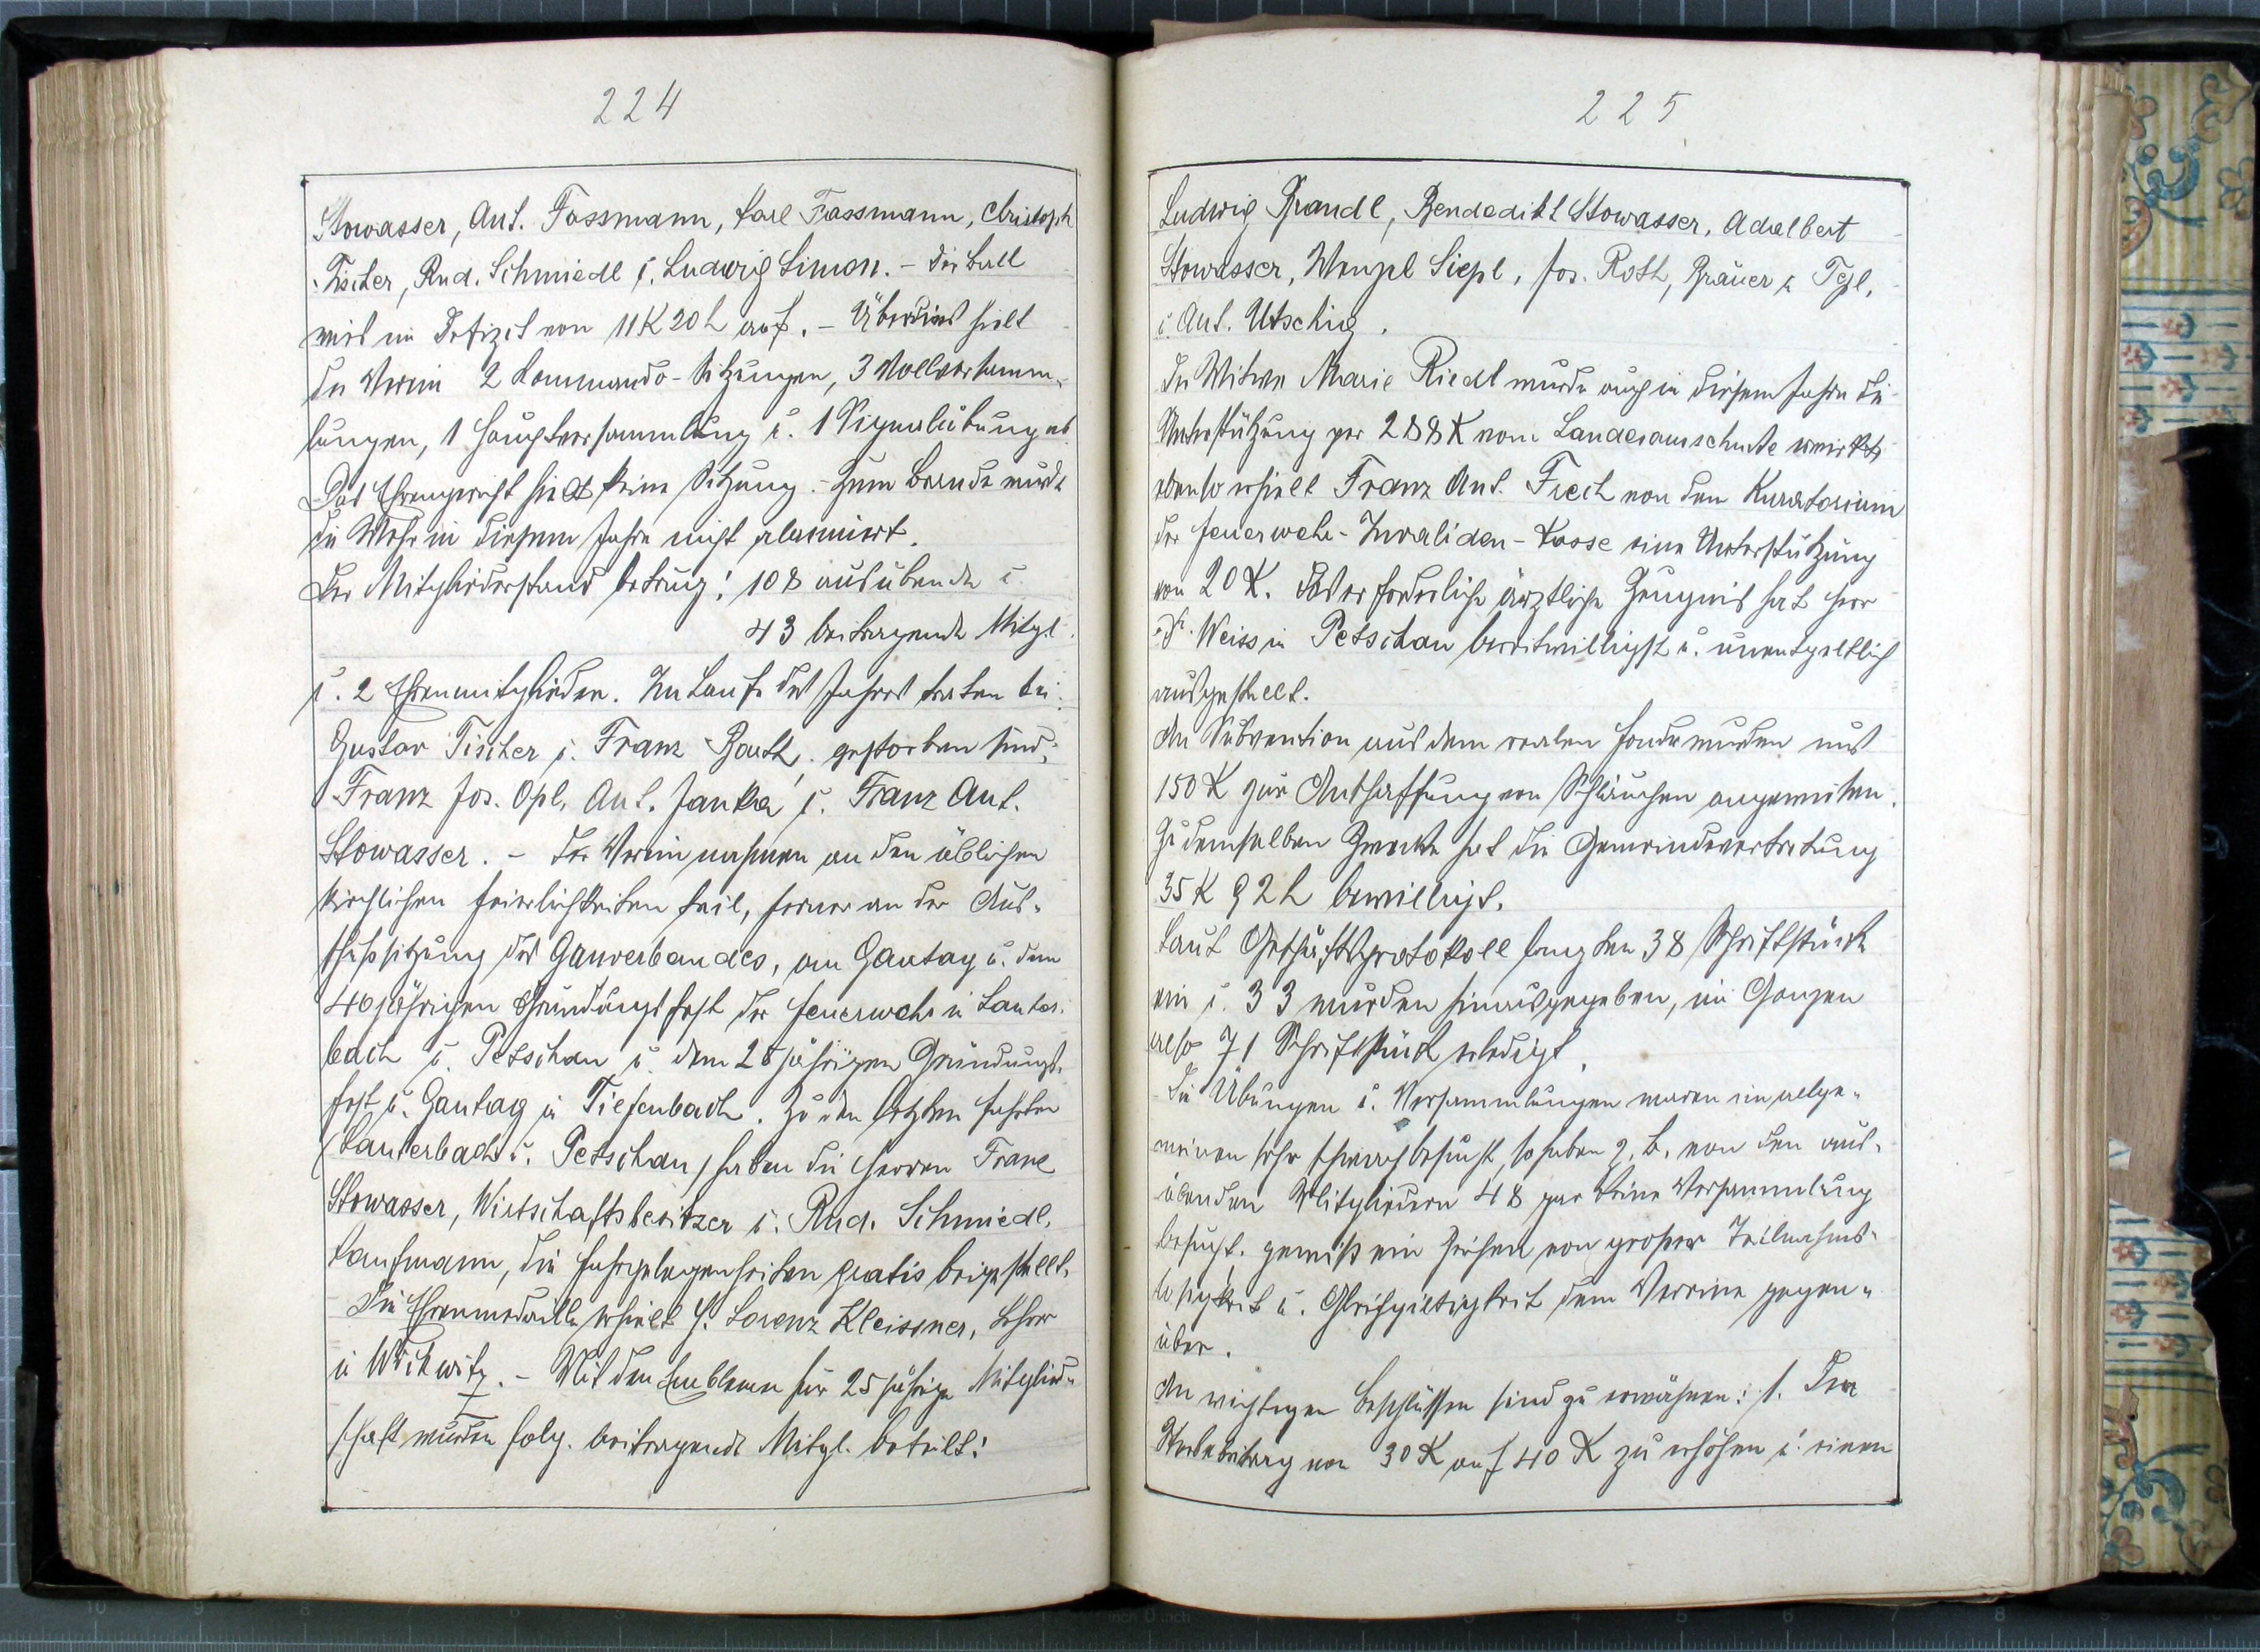 224
Stowasser, Ant. Fassmann, Karl Fassmann, Christoph
Tischer, Rud. Schmiedl u. Ludwig Simon. – Der Ball
wies ein Defizit von 11 K 20 h auf. – Überdies hielt
der Verein 2 Kommando-Sitzungen, 3 Vollversamm-
lungen, 1 Hauptversammlung u. 1 Signalübung ab.
Das Ehrengericht hielt keine Sitzung. – Zum Brande wurde
die Wehr in diesem Jahre nicht alarmiert.
Der Mitgliederstand betrug: 108 ausübende u.
43 beitragende Mitgl.
u. 2 Ehrenmitglieder. Im Laufe des Jahres traten bei:
Gustav Tischer u. Franz Barth, gestorben sind:
Franz Jos. Opl, Ant. Janka u. Franz Ant.
Stowasser. – Der Verein nahmen an den üblichen
kirchlichen Feierlichkeiten teil, ferner an der Aus-
schußsitzung des Gauverbandes, am Gautag u. dem
40jährigen Gründungsfest der Feuerwehr in Lauter-
bach u. Petschau u. dem 25jährigen Gründungs-
fest u. Gautag in Tiefenbach. Zu den letzten Fahrten
(Lauterbach u. Petschau) haben die Herren Franz
Stowasser, Wirtschaftsbesitzer u. Rud. Schmiedl,
Kaufmann, die Fahrgelegenheiten gratis beigestellt.
Die Ehrenmedaille erhielt H. Lorenz Kleissner, Lehrer
in Wichwitz. – Mit den Emblemen für 25jährige Mitglied-
schaft wurden folg. beitragende Mitgl. beteilt:
225
Ludwig Brandl, Bendedikt Stowasser, Adalbert
Stowasser, Wenzel Siepl, Jos. Roth, Bräuer in Tepl,
u. Ant. Utschig.
Der Witwe Marie Riedl wurde auch in diesem Jahre die
Unterstützung per 288 K vom Landesausschusse erwirkt,
ebenso erhielt Franz Ant. Frech von dem Kuratorium
der Feuerwehr-Invaliden-Kasse eine Unterstützung
von 20 K. Das erforderliche ärztliche Zeugnis hat Herr
Dr. Weiss in Petschau bereitwilligst u. unentgeltlich
ausgestellt.
An Subvention aus dem realen Fonde wurden uns
150 K zur Anschaffung von Schläuchen angewiesen.
Zu demselben Zwecke hat die Gemeindevertretung
35 K 92 h bewilligt.
Laut Geschäftsprotokoll langten 38 Schriftstücke
ein u. 33 wurden hinausgegeben, im Ganzen
also 71 Schriftstücke erledigt.
Die Übungen u. Versammlungen waren im allge-
meinen sehr schwach besucht, so haben z. B. von den aus-
übenden Mitgliedern 48 gar keine Versammlung
besucht, gewiß ein Zeichen von großer Teilnahms-
losigkeit u. Gleichgiltigkeit dem Vereine gegen-
über.
An wichtigen Beschlüssen sind zu erwähnen: 1. Den
Sterbebeitrag von 30 K auf 40 K zu erhöhen u. einen